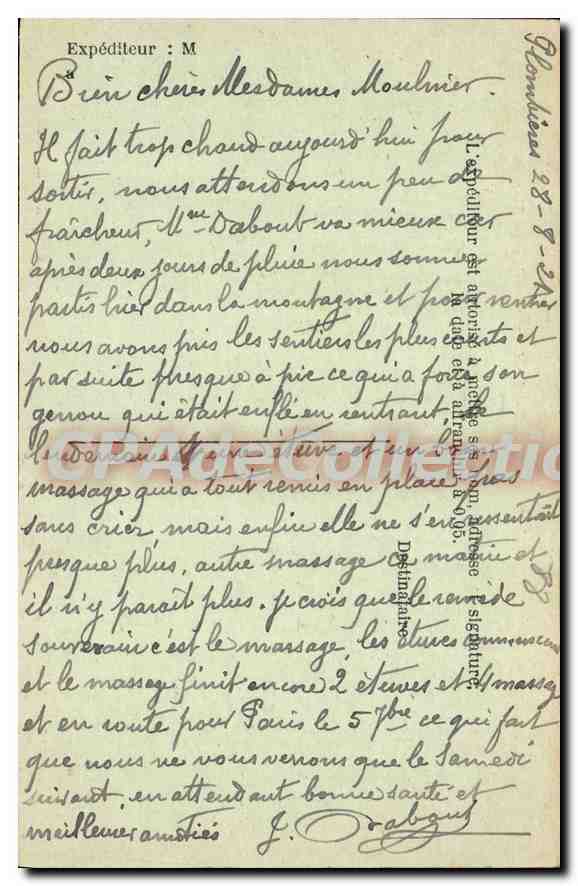 Expéditeur : M
Bien chères Mesdames Moulinier.
Il fait trop chaud aujourd'hui pour
sortir, nous attendons un peu de
fraîcheur, Mme Dabout va mieux car
après deux jours de pluie nous sommes
partis hier dans la montagne et pour rentrer
nous avons pris les sentiers les plus courts et
par suite presque à pic ce qui a forcé son
genou qui était enflé en rentrant. Le
lendemain étuve et un bon
massage qui a tout remis en place pas
sans crier mais enfin elle ne s'en ressentait
presque plus, autre massage ce matin et
il n'y parait plus. je crois que le remède
souverain c'est le massage, les étuves commencent
et le massage finit encore 2 étuves et 4 massages
et en route pour Paris le 5 7bre ce qui fait
que nous ne vous verrons que le Samedi
suivant, en attendant bonne santé et
meilleures amitiés J. Dabout
Plombières 28-8-21
L'expéditeur est autorisé à mettre ses nom, adresse signature,
la date et la affranchi à 0,05.
Destinataire
CPA de Collection